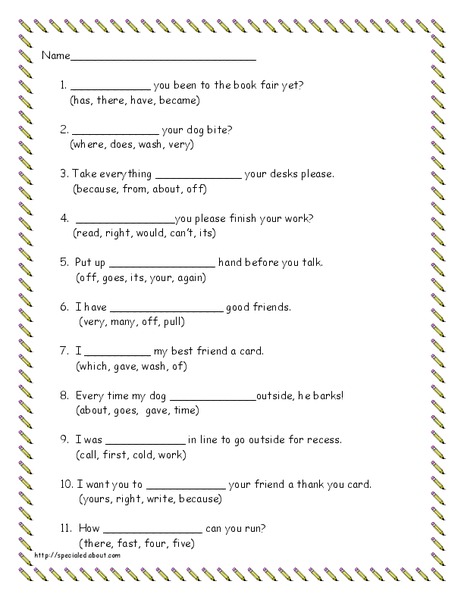 Name____________________________
1. ____________ you been to the book fair yet?
(has, there, have, became)
2. _____________ your dog bite?
(where, does, wash, very)
3. Take everything _____________ your desks please.
(because, from, about, off)
4. _______________you please finish your work?
(read, right, would, can't, its)
5. Put up ________________ hand before you talk.
(off, goes, its, your, again)
6. I have _________________ good friends.
(very, many, off, pull)
7. I __________ my best friend a card.
(which, gave, wash, of)
8. Every time my dog _____________outside, he barks!
(about, goes, gave, time)
9. I was ____________ in line to go outside for recess.
(call, first, cold, work)
10. I want you to ____________ your friend a thank you card.
(yours, right, write, because)
11. How _______________ can you run?
(there, fast, four, five)
http://specialed.about.com